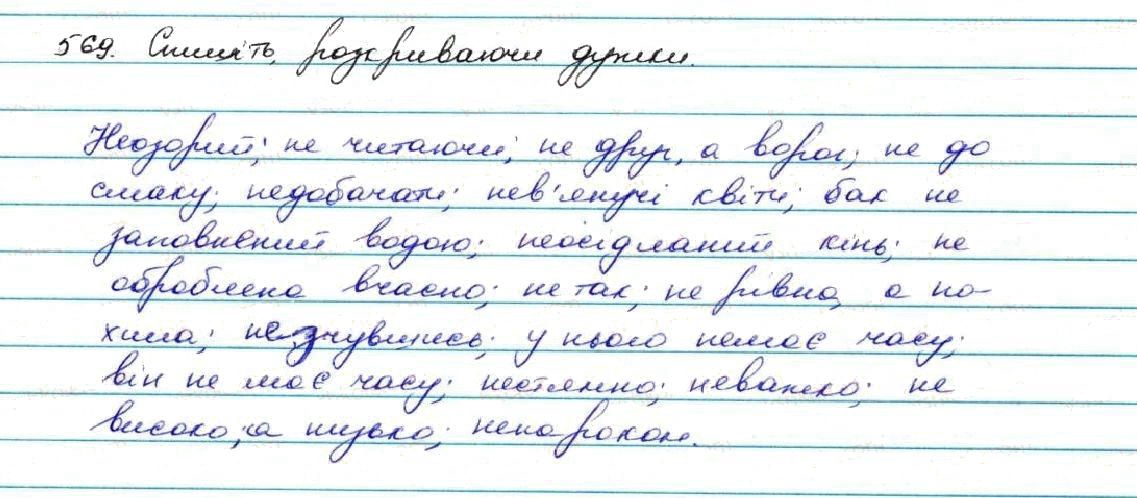 569. Спишіть, розкриваючи дужки.
Неозорий; не читаючи; не друг, а ворог; не до
смаку; недобачати; нев'янучі квіти; бак не
заповнений водою; неосідланий кінь; не
оброблено вчасно; не так; не рівна, а по-
хила; незчувшись; у нього немає часу;
він не має часу; нестямно; неважко; не
високо, а низько; ненароком.